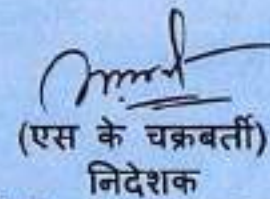 (एस के चक्रबर्ती)
निदेशक